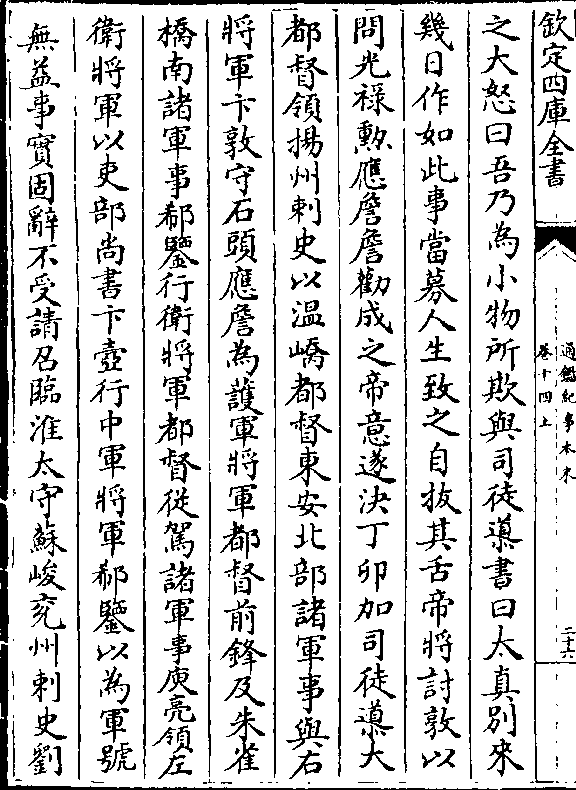 欽定四庫全書
通鑑紀事本末
卷十四上
二十六
之大怒曰吾乃為小物所欺與司徒導書曰太真别來
幾日作如此事當募人生致之自拔其舌帝將討敦以
問光祿勲應詹詹勸成之帝意遂決丁卯加司徒導大
都督領揚州刺史以温嶠都督東安北部諸軍事與右
將軍卞敦守石頭應詹為護軍將軍都督前鋒及朱雀
橋南諸軍事郗鑒行衛將軍都督從駕諸軍事庾亮領左
衛將軍以吏部尚書卞壼行中軍將軍郗鑒以為軍號
無益事實固辭不受請召臨淮太守蘇峻兖州刺史劉